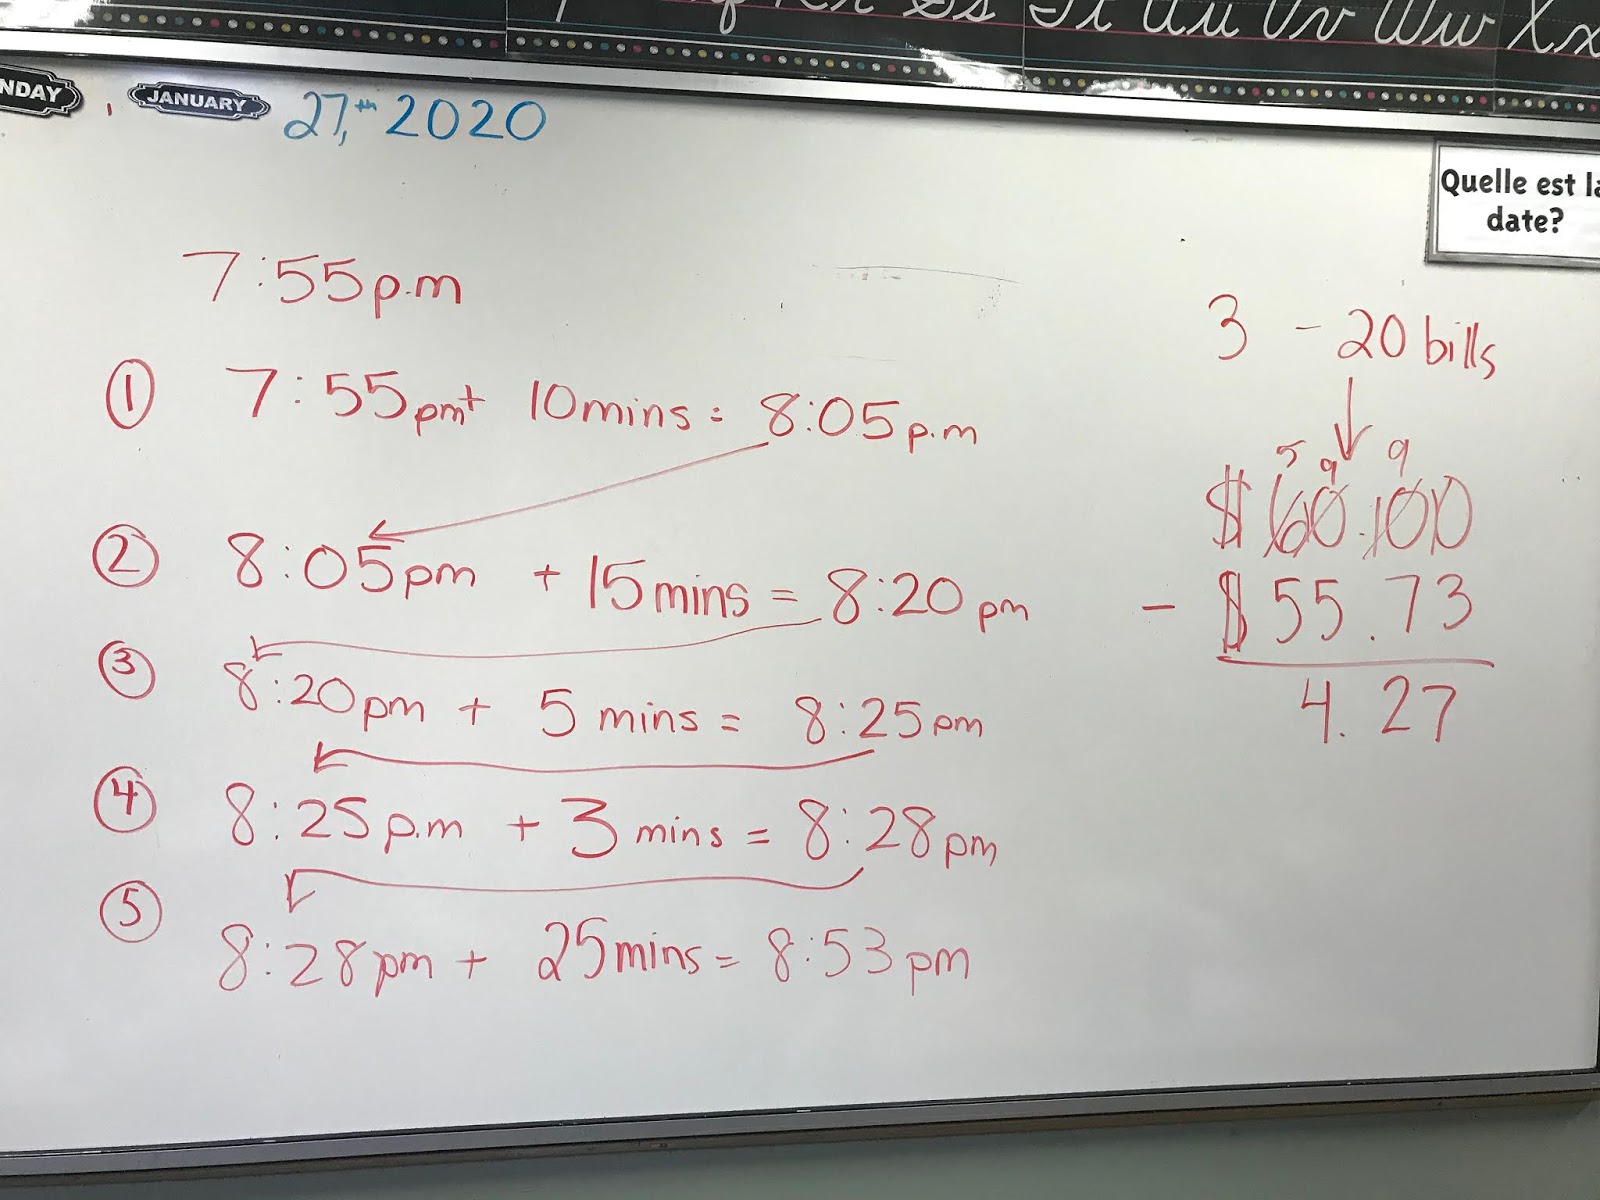 Ss Tt Uu Vv Ww Xx
NDAY JANUARY 27,th 2020
Quelle est la
date?
7:55p.m
① 7:55pm + 10mins = 8:05p.m
② 8:05pm + 15mins = 8:20pm
③ 8:20pm + 5 mins = 8:25pm
④ 8:25p.m + 3 mins = 8:28pm
⑤ 8:28pm + 25mins = 8:53pm
3 - 20 bills
5 9 9
$60.100
- $55.73
4.27